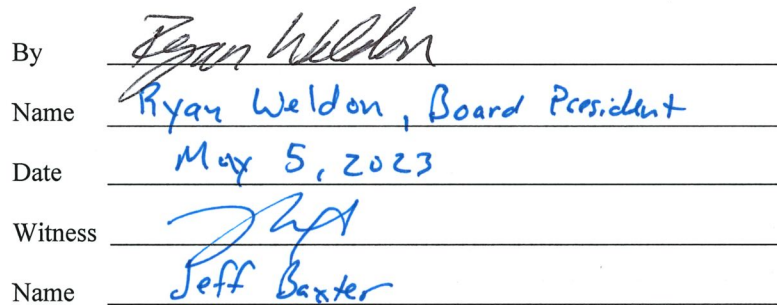 By Ryan Weldon
Name Ryan Weldon, Board President
Date May 5, 2023
Witness
Name Jeff Baxter